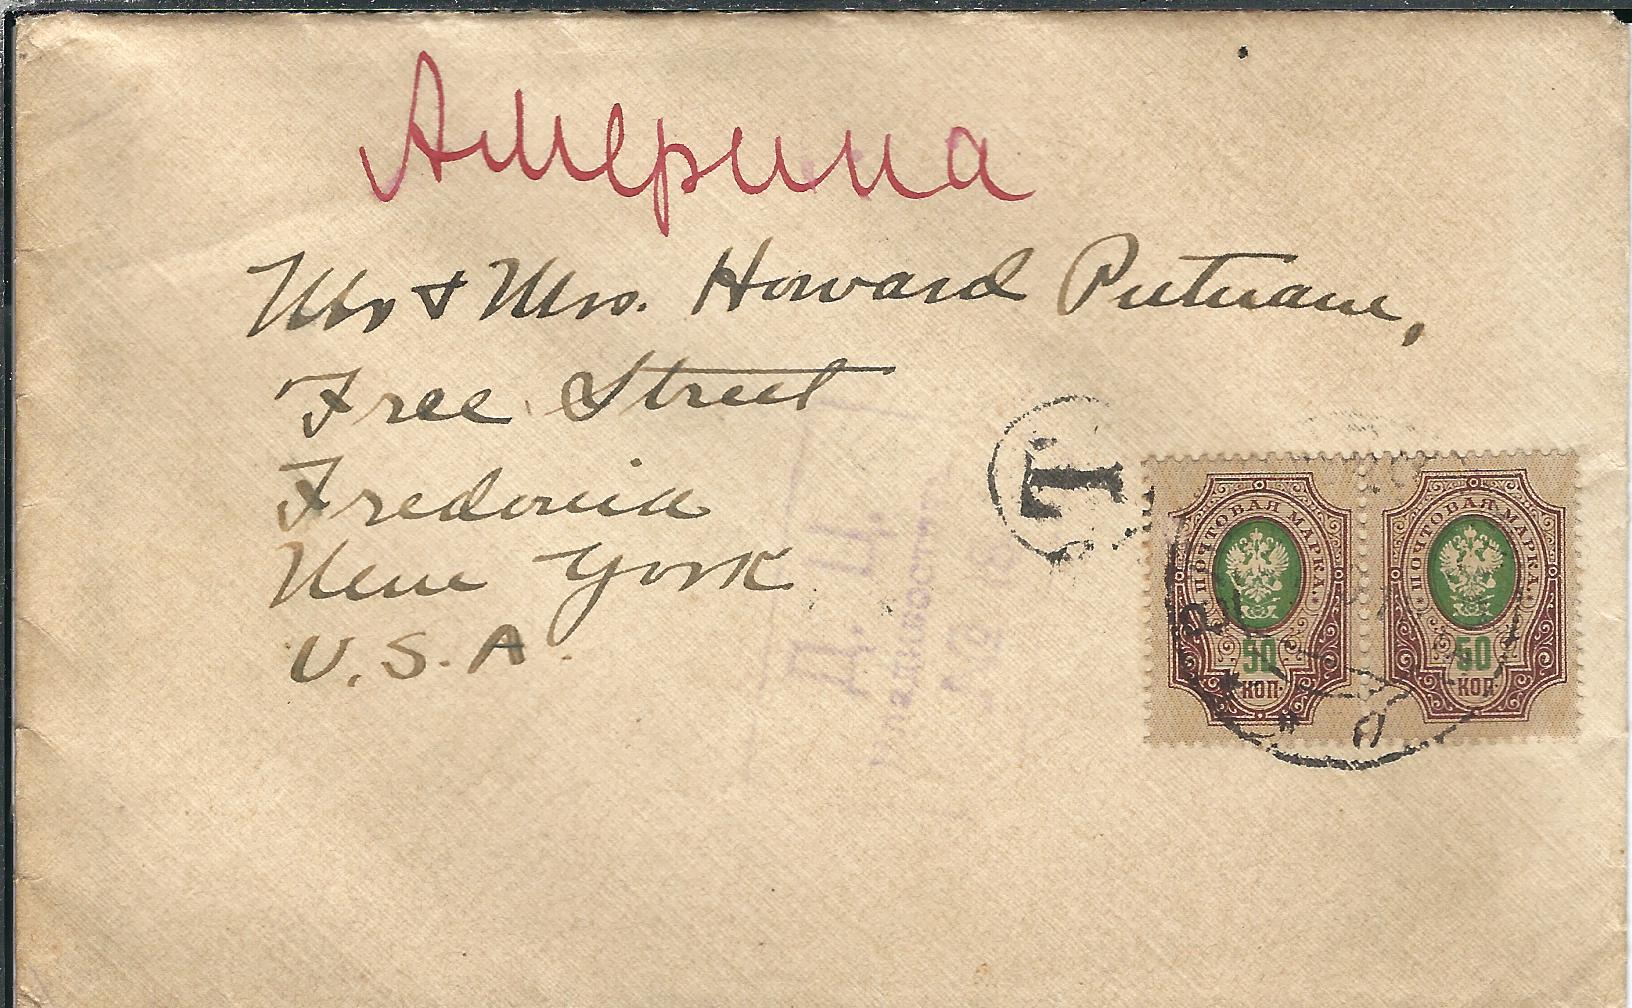 Америка
Mr & Mrs. Howard Putnam,
Free Street
Fredonia
New York
U.S.A.
T
ПОЧТОВАЯ МАРКА
50
КОП.
ПОЧТОВАЯ МАРКА
50
КОП.